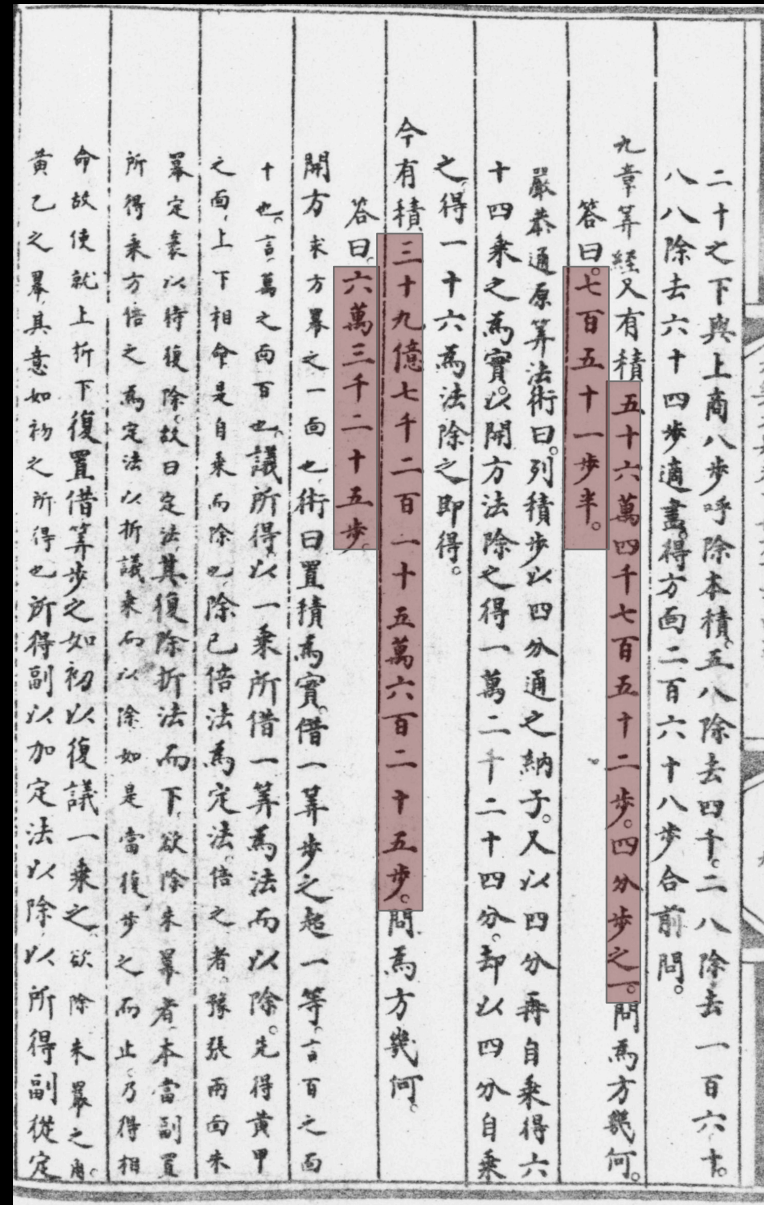 二十之下與上商八步呼除本積。五八除去四千。二八除去一百六十。
八八除去六十四步適盡。得方面二百六十八步合前問。
九章筭經又有積五十六萬四千七百五十二步。四分步之一。問爲方幾何。
答曰。七百五十一步半。
嚴恭通原筭法術曰。列積步以四分通之納子。又以四分再自乘得六
十四乘之爲實。以開方法除之得一萬二千二十四分。却以四分自乘
之得一十六爲法除之即得。
今有積三十九億七千二百一十五萬六百二十五步。問爲方幾何。
答曰。六萬三千二十五步。
開方求方冪之一面也術曰置積爲實。借一筭步之超一等。言百之面
十也。言萬之面百也。議所得以一乘所借一筭爲法而以除。先得黄甲
之面上下相命是自乘而除也除已倍法爲定法。倍之者豫張兩面朱
冪定袤以待復除故曰定法其復除折法而下。欲除朱冪者本當副置
所得乘方倍之爲定法以折議乘而以除如是當復步之而止乃得相
命故使就上折下復置借筭步之如初以復議一乘之欲除朱冪之角。
黄乙之冪其意如初之所得也所得副以加定法以除以所得副從定